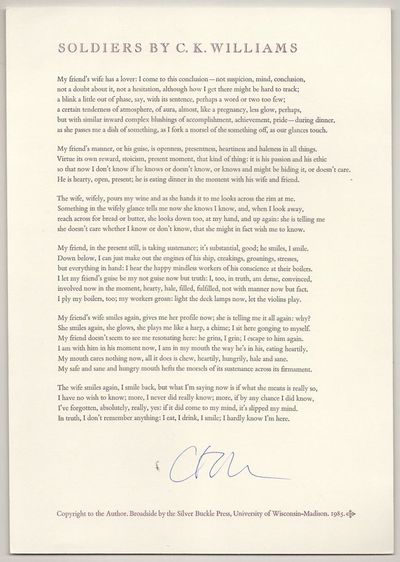 SOLDIERS BY C. K. WILLIAMS
My friend's wife has a lover: I come to this conclusion—not suspicion, mind, conclusion,
not a doubt about it, not a hesitation, although how I get there might be hard to track;
a blink a little out of phase, say, with its sentence, perhaps a word or two too few;
a certain tenderness of atmosphere, of aura, almost, like a pregnancy, less glow, perhaps,
but with similar inward complex blushings of accomplishment, achievement, pride—during dinner,
as she passes me a dish of something, as I fork a morsel of the something off, as our glances touch.
My friend's manner, or his guise, is openness, presentness, heartiness and haleness in all things.
Virtue its own reward, stoicism, present moment, that kind of thing: it is his passion and his ethic
so that now I don't know if he knows or doesn't know, or knows and might be hiding it, or doesn't care.
He is hearty, open, present; he is eating dinner in the moment with his wife and friend.
The wife, wifely, pours my wine and as she hands it to me looks across the rim at me.
Something in the wifely glance tells me now she knows I know, and, when I look away,
reach across for bread or butter, she looks down too, at my hand, and up again: she is telling me
she doesn't care whether I know or don't know, that she might in fact wish me to know.
My friend, in the present still, is taking sustenance; it's substantial, good; he smiles, I smile.
Down below, I can just make out the engines of his ship, creakings, groanings, stresses,
but everything in hand: I hear the happy mindless workers of his conscience at their boilers.
I let my friend's guise be my not guise but truth: I, too, in truth, am dense, convinced,
involved now in the moment, hearty, hale, filled, fulfilled, not with manner now but fact.
I ply my boilers, too; my workers groan: light the deck lamps now, let the violins play.
My friend's wife smiles again, gives me her profile now; she is telling me it all again: why?
She smiles again, she glows, she plays me like a harp, a chime; I sit here gonging to myself.
My friend doesn't seem to see me resonating here: he grins, I grin; I escape to him again.
I am with him in his moment now, I am in my mouth the way he's in his, eating heartily.
My mouth cares nothing now, all it does is chew, heartily, hungrily, hale and sane.
My safe and sane and hungry mouth hefts the morsels of its sustenance across its firmament.
The wife smiles again, I smile back, but what I'm saying now is if what she means is really so,
I have no wish to know; more, I never did really know; more, if by any chance I did know,
I've forgotten, absolutely, really, yes: if it did come to my mind, it's slipped my mind.
In truth, I don't remember anything: I eat, I drink, I smile; I hardly know I'm here.
Copyright to the Author. Broadside by the Silver Buckle Press, University of Wisconsin-Madison. 1985.